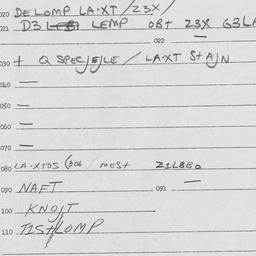 020 DE LOMP LA·XT / Z3X /
021 D3 LEMP OBT Z3X G3LA
022 —
030 + Q SPECJEJLE / LA·XT StAJN
040 —
050 —
060 —
070 —
080 LA·XTOS (306 / MESt Z1L8E0
090 NAFT 091 —
100 KNOJT
110 TIStLOMP